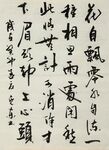 花自飄零水自流一
種相思兩處閒愁
此情無計可消除才
下眉頭却上心頭